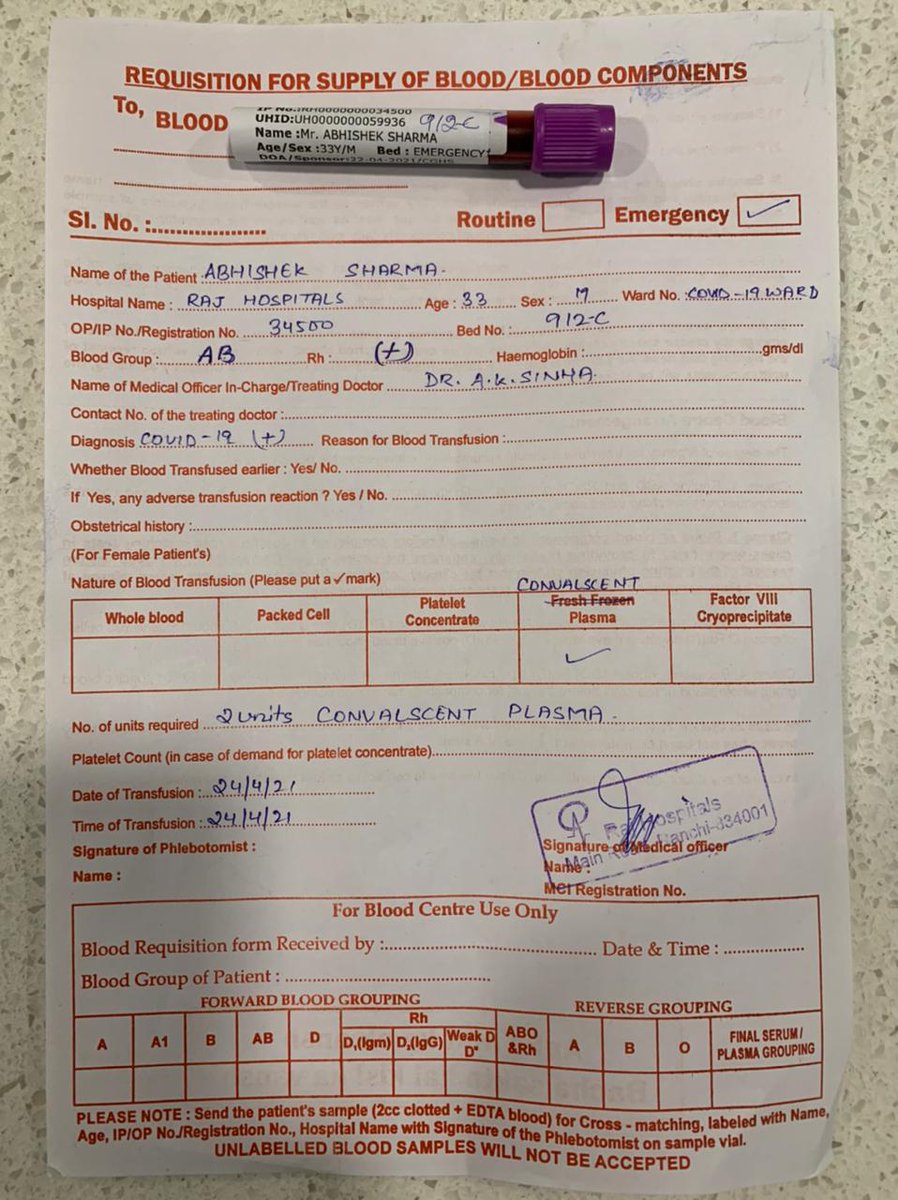 REQUISITION FOR SUPPLY OF BLOOD/BLOOD COMPONENTS
To,
BLOOD
IP No.:RH0000000034500
UHID:UH0000000059936 912-C
Name :Mr. ABHISHEK SHARMA
Age/Sex :33Y/M Bed : EMERGENCY
DOA/Sponsor:22-04-2021/CGHS
Sl. No. :....................
Routine Emergency ✓
Name of the Patient ABHISHEK SHARMA.
Hospital Name : RAJ HOSPITALS Age : 33 Sex : M Ward No. :COVID-19 WARD
OP/IP No./Registration No. 34500 Bed No. : 912-C
Blood Group : AB Rh : (+) Haemoglobin : gms/dl
Name of Medical Officer In-Charge/Treating Doctor DR. A.K. SINHA.
Contact No. of the treating doctor :
Diagnosis COVID-19 (+) Reason for Blood Transfusion :
Whether Blood Transfused earlier : Yes/ No.
If Yes, any adverse transfusion reaction ? Yes / No.
Obstetrical history :
(For Female Patient's)
Nature of Blood Transfusion (Please put a ✓ mark) CONVALSCENT
Whole blood Packed Cell Platelet Concentrate Fresh Frozen Plasma Factor VIII Cryoprecipitate
✓
No. of units required 2 units CONVALSCENT PLASMA.
Platelet Count (in case of demand for platelet concentrate)
Date of Transfusion : 24/4/21
Time of Transfusion : 24/4/21
Signature of Phlebotomist :
Name :
Raj Hospitals
Main Ranchi-834001
Signature of Medical officer
Name :
MCI Registration No.
For Blood Centre Use Only
Blood Requisition form Received by : Date & Time :
Blood Group of Patient :
FORWARD BLOOD GROUPING REVERSE GROUPING
A A1 B AB D Rh D,(Igm) D,(IgG) Weak D Dᵘ ABO &Rh A B O FINAL SERUM / PLASMA GROUPING
PLEASE NOTE : Send the patient's sample (2cc clotted + EDTA blood) for Cross - matching, labeled with Name,
Age, IP/OP No./Registration No., Hospital Name with Signature of the Phlebotomist on sample vial.
UNLABELLED BLOOD SAMPLES WILL NOT BE ACCEPTED